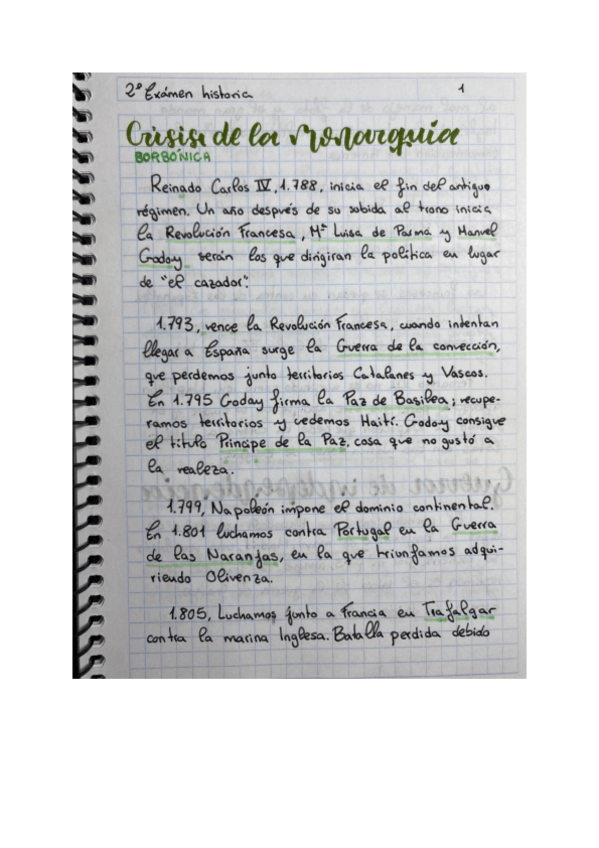 2º Exámen historia 1
Crisis de la Monarquía
BORBÓNICA
Reinado Carlos IV, 1.788, inicia el fin del antiguo
régimen. Un año después de su subida al trono inicia
la Revolución Francesa, Mª Luisa de Parma y Manuel
Godoy serán los que dirigiran la política en lugar
de "el cazador".
1.793, vence la Revolución Francesa, cuando intentan
llegar a España surge la Guerra de la convección,
que perdemos junto territorios Catalanes y Vascos.
En 1.795 Goday firma la Paz de Basilea; recupe-
ramos territorios y cedemos Haití. Godoy consigue
el título Príncipe de la Paz, cosa que no gustó a
la realeza.
1.799, Napoleón impone el dominio continental.
En 1.801 luchamos contra Portugal en la Guerra
de las Naranjas, en la que triunfamos adqui-
riendo Olivenza.
1.805, Luchamos junto a Francia en Trafalgar
contra la marina Inglesa. Batalla perdida debido